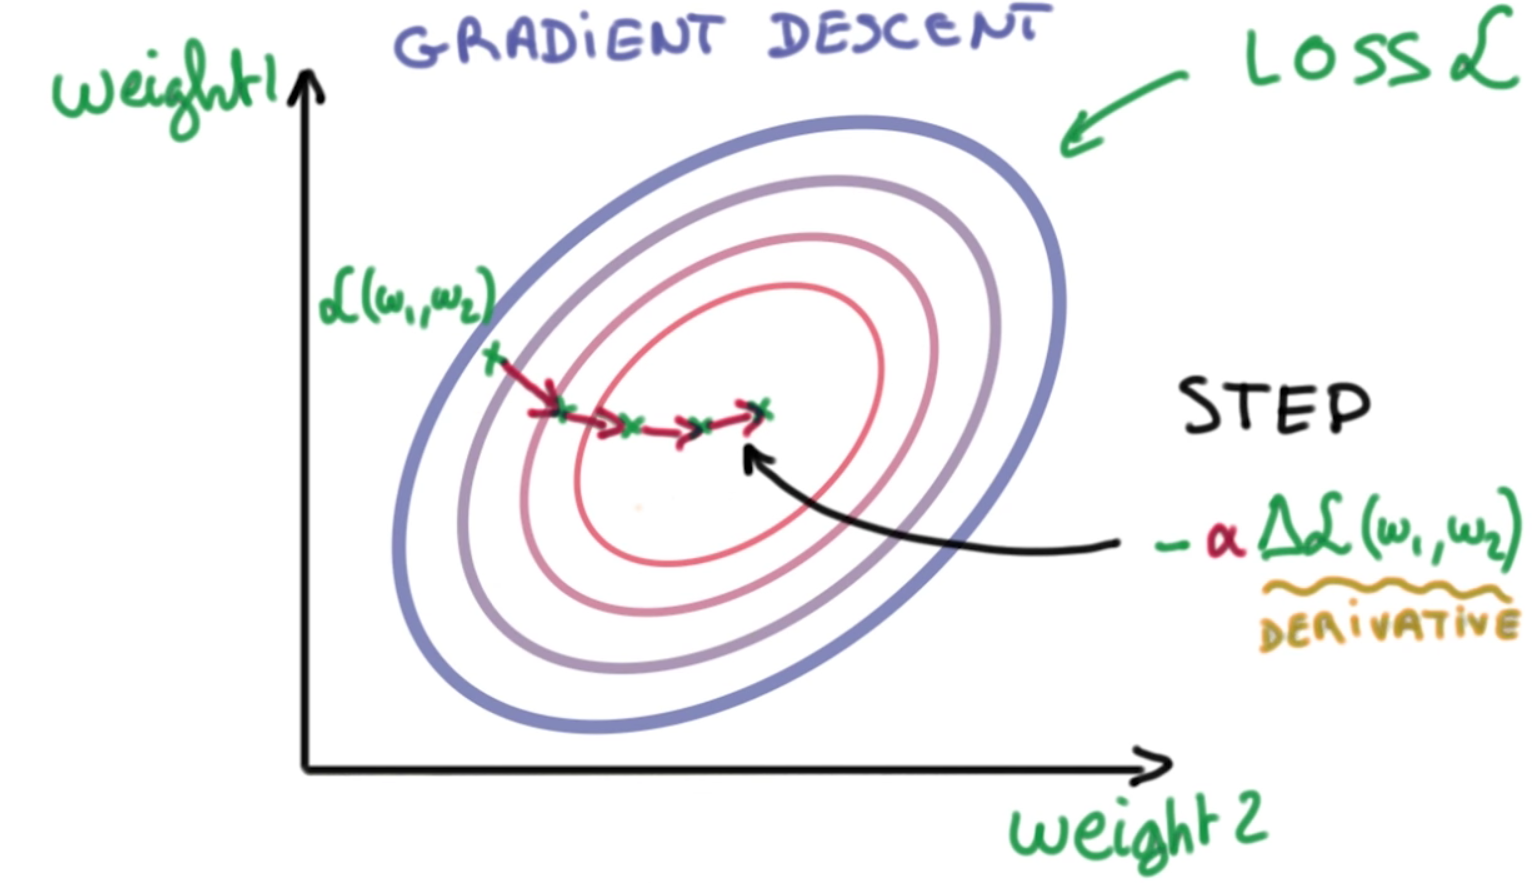 GRADiENT DESCENT
weight1
LOSS ℒ
ℒ(w₁,w₂)
STEP
-α Δℒ(w₁,w₂)
DERiVATiVE
weight2